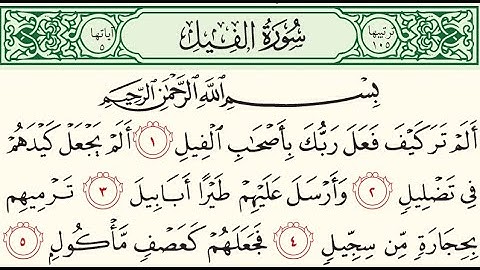 ترتيبها ١٠٥
سُورَةُ الْفِيلِ
آياتها ٥
بِسْمِ اللَّهِ الرَّحْمَٰنِ الرَّحِيمِ
أَلَمْ تَرَ كَيْفَ فَعَلَ رَبُّكَ بِأَصْحَابِ الْفِيلِ ١ أَلَمْ يَجْعَلْ كَيْدَهُمْ
فِي تَضْلِيلٍ ٢ وَأَرْسَلَ عَلَيْهِمْ طَيْرًا أَبَابِيلَ ٣ تَرْمِيهِم
بِحِجَارَةٍ مِّن سِجِّيلٍ ٤ فَجَعَلَهُمْ كَعَصْفٍ مَّأْكُولٍ ٥